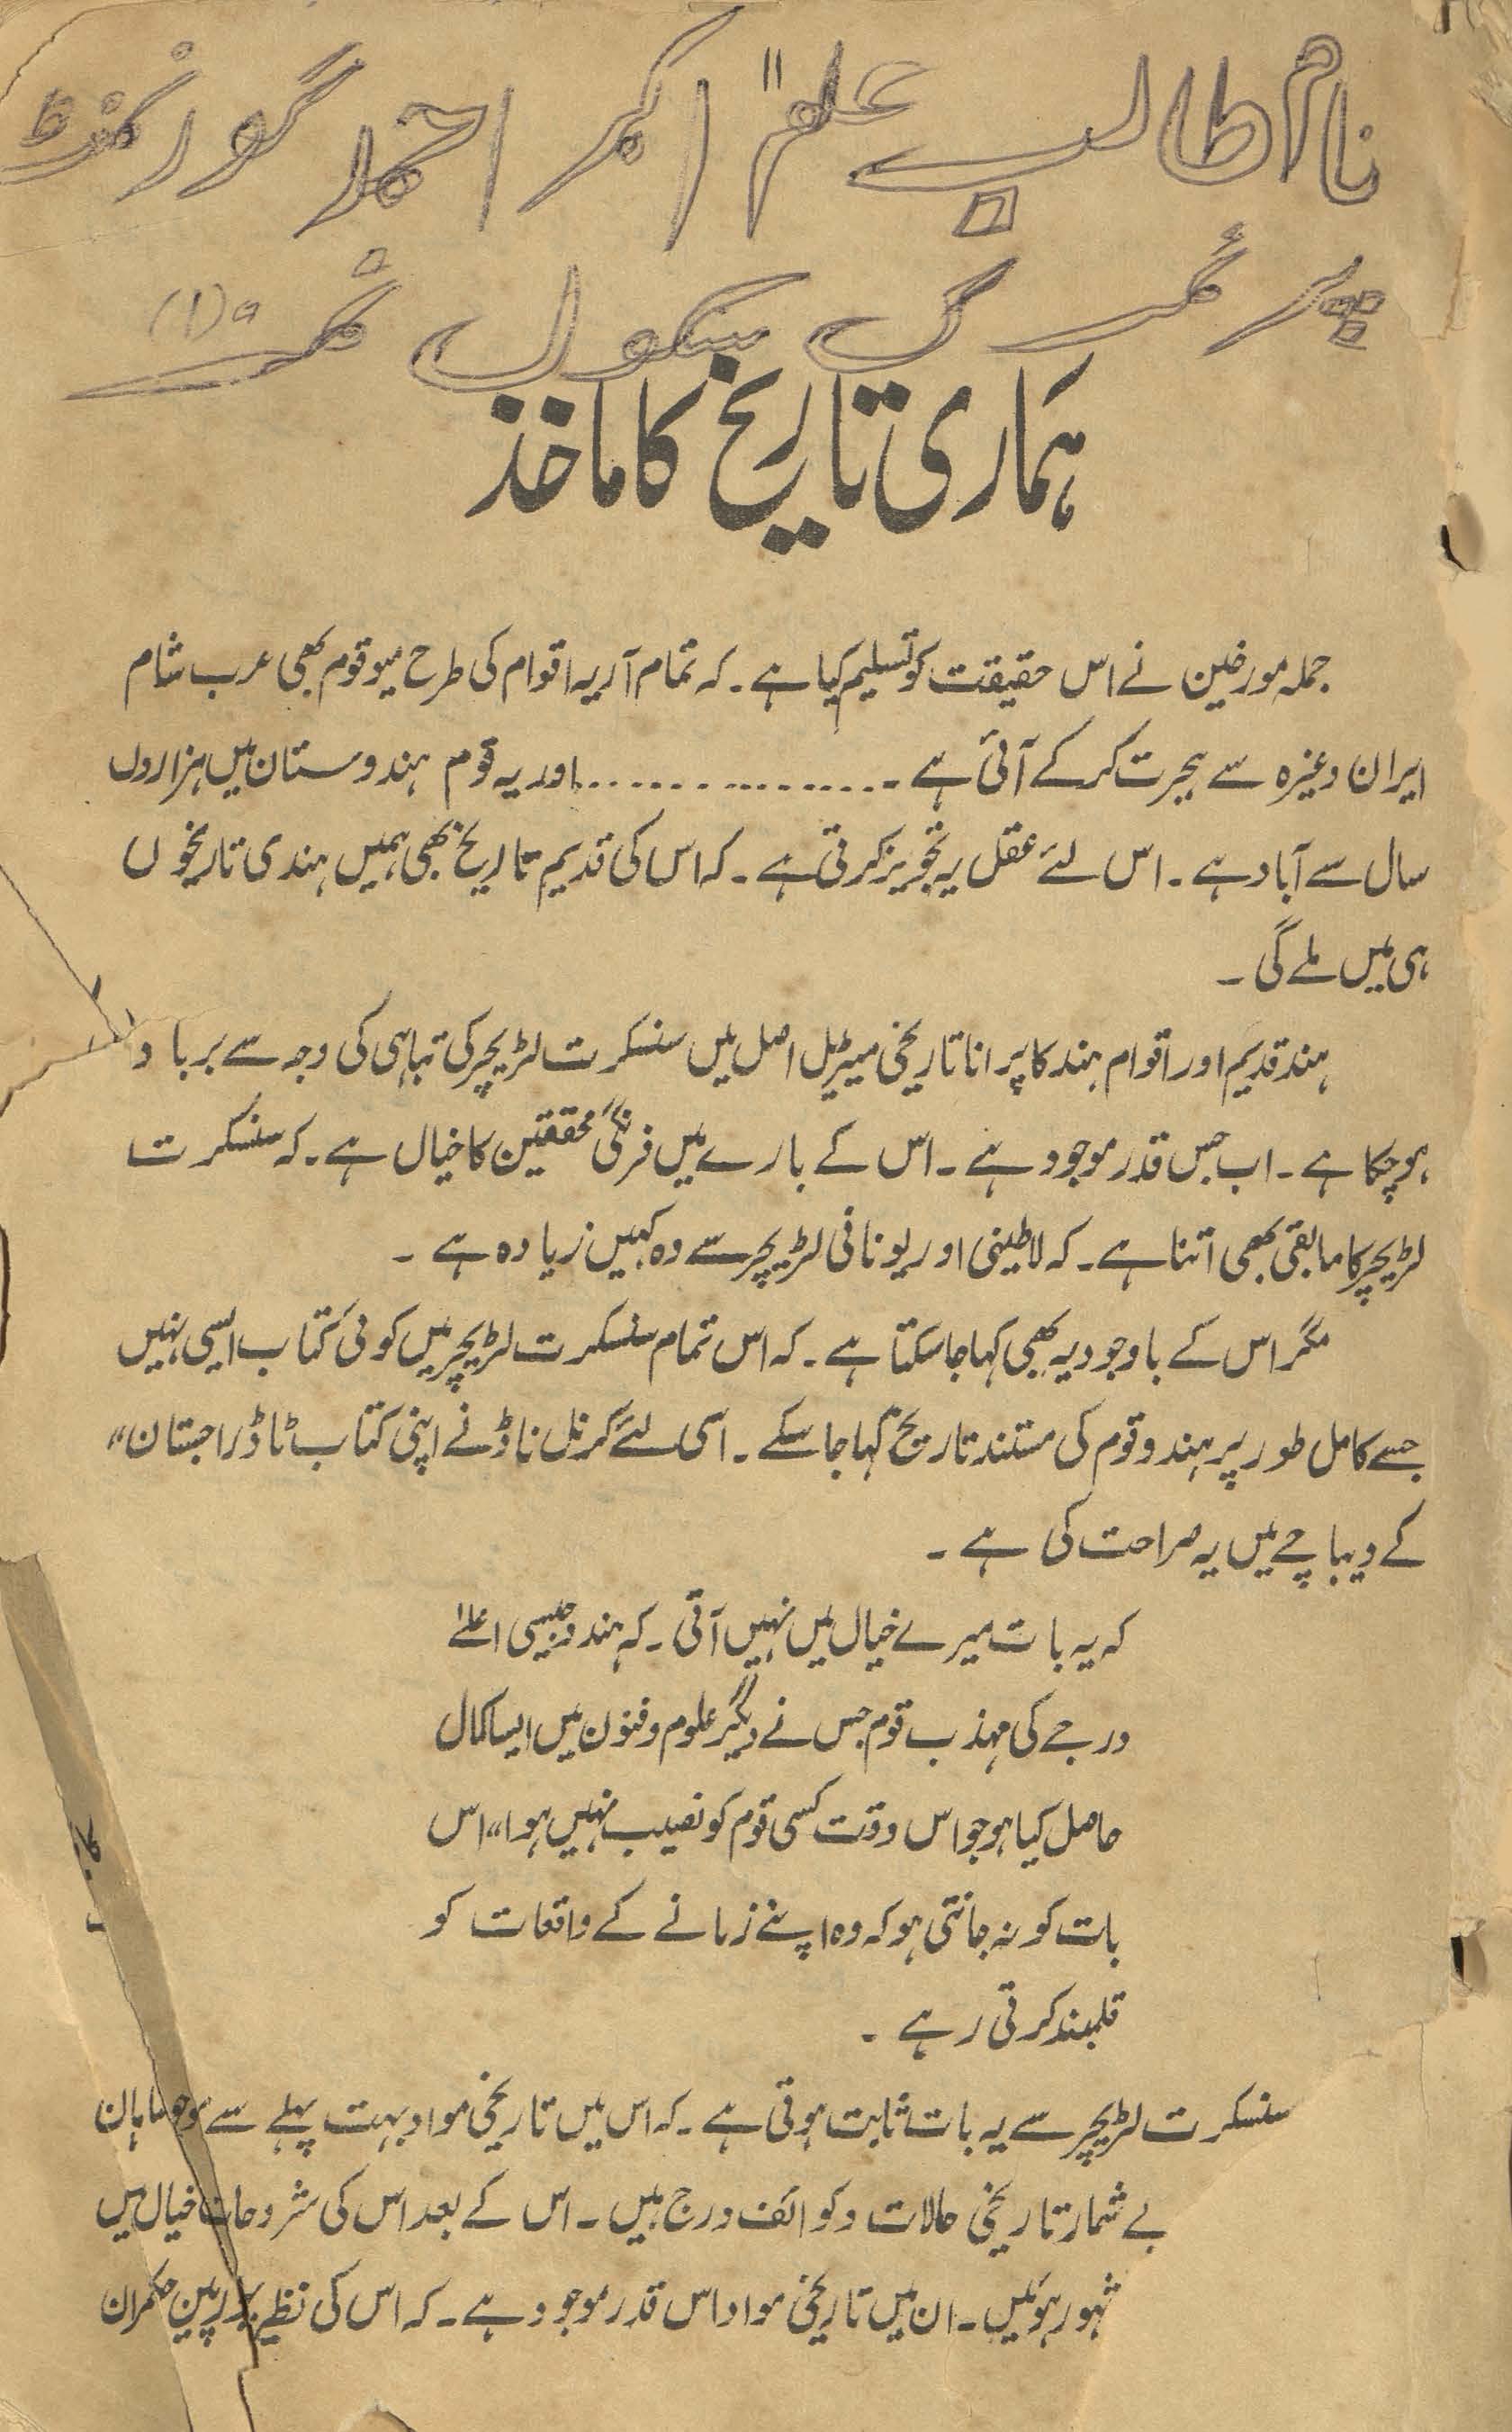 نام طالب علم اکبر احمد گورنمنٹ
پرائمری سکول
(1)
ہماری تاریخ کا ماخذ
جملہ مورخین نے اس حقیقت کو تسلیم کیا ہے ۔ کہ تمام آریہ اقوام کی طرح میو قوم بھی عرب شام
ایران وغیرہ سے ہجرت کر کے آئی ہے ۔ ................ اور یہ قوم ہندوستان میں ہزاروں
سال سے آباد ہے ۔ اس لئے عقل یہ تجویز کرتی ہے ۔ کہ اس کی قدیم تاریخ بھی ہمیں ہندی تاریخوں
ہی میں ملے گی ۔
ہند قدیم اور اقوام ہند کا پرانا تاریخی میٹریل اصل میں سنسکرت لڑیچر کی تباہی کی وجہ سے برباد
ہو چکا ہے ۔ اب جس قدر موجود ہے ۔ اس کے بارے میں فرنگی محققین کا خیال ہے ۔ کہ سنسکرت
لڑیچر کا مابقی بھی اتنا ہے ۔ کہ لاطینی اور یونانی لڑیچر سے وہ کہیں زیادہ ہے ۔
مگر اس کے باوجود یہ بھی کہا جا سکتا ہے ۔ کہ اس تمام سنسکرت لڑیچر میں کوئی کتاب ایسی نہیں
جسے کامل طور پر ہندو قوم کی مستند تاریخ کہا جا سکے ۔ اسی لئے کرنل ٹاڈ نے اپنی کتاب ٹاڈ راجستان،،
کے دیباچے میں یہ صراحت کی ہے ۔
کہ یہ بات میرے خیال میں نہیں آتی ۔ کہ ہندو جیسی اعلےٰ
درجے کی مہذب قوم جس نے دیگر علوم و فنون میں ایسا کمال
حاصل کیا ہو جو اس وقت کسی قوم کو نصیب نہیں ہوا،، اس
بات کو نہ جانتی ہو کہ وہ اپنے زمانے کے واقعات کو
قلمبند کرتی رہے ۔
سنسکرت لڑیچر سے یہ بات ثابت ہوتی ہے ۔ کہ اس میں تاریخی مواد بہت پہلے سے
بے شمار تاریخی حالات و کوائف درج ہیں ۔ اس کے بعد اس کی شروحات خیال میں
ہوئیں ۔ ان میں تاریخی مواد اس قدر موجود ہے ۔ کہ اس کی نظیر یورپین حکمران